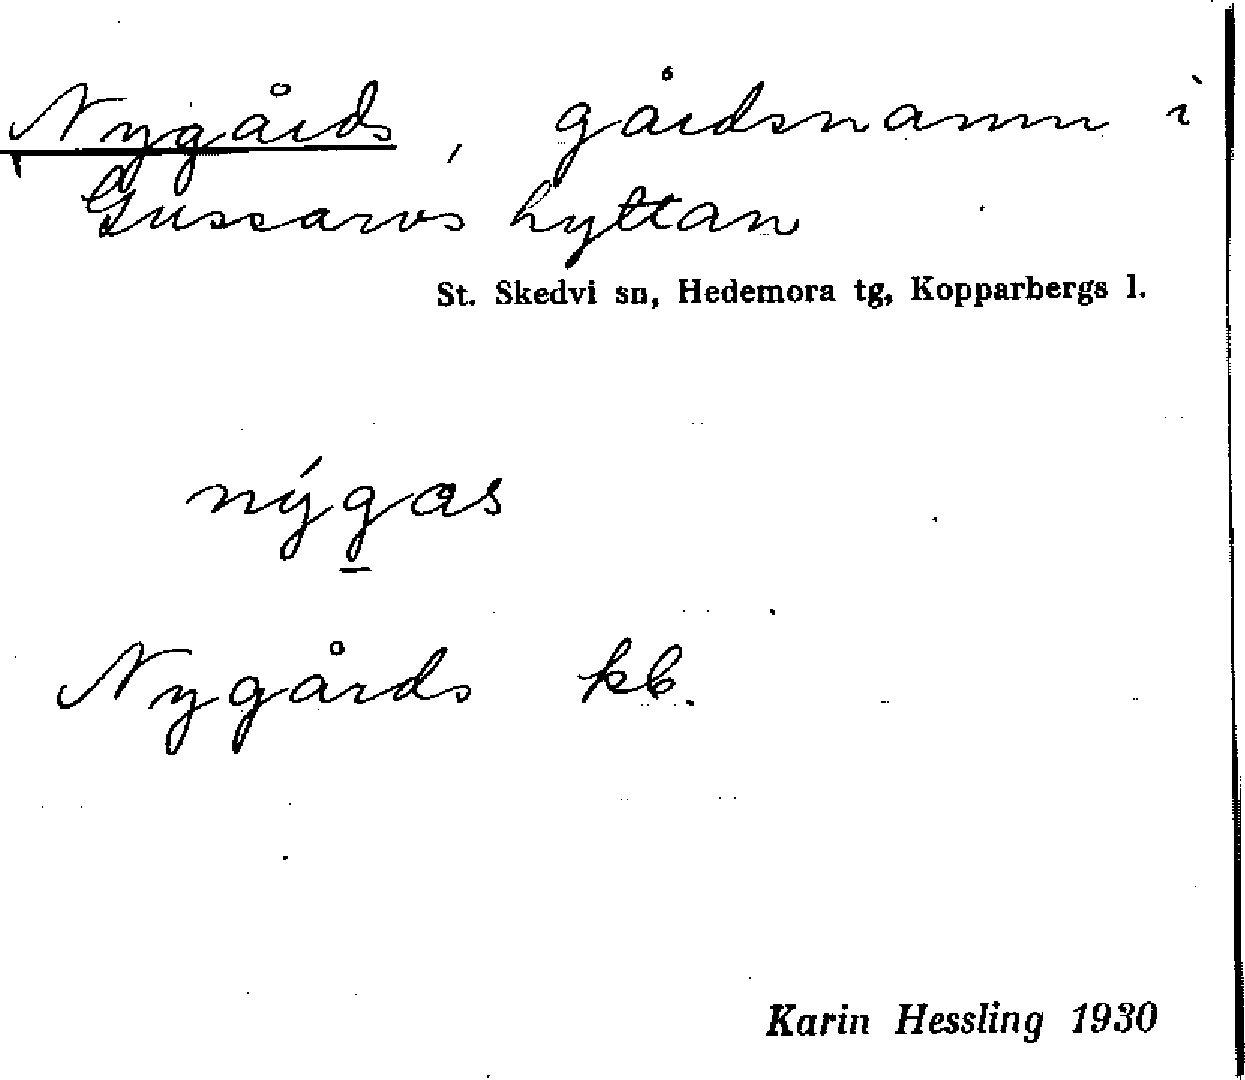 Nygårds, gårdsnamn i
Gussarvshyttan
St. Skedvi sn, Hedemora tg, Kopparbergs l.
nýg̲as
Nygårds kb.
Karin Hessling 1930